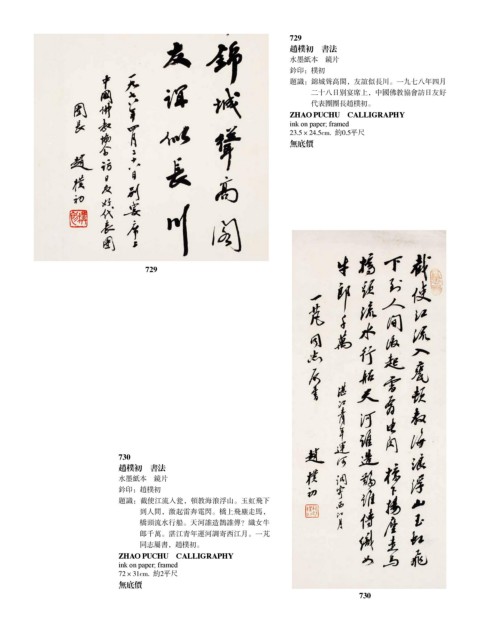 729
趙樸初　書法
水墨紙本　鏡片
鈐印：樸初
題識：錦城聳高閣，友誼似長川。一九七八年四月
二十八日別宴席上，中國佛教協會訪日友好
代表團團長趙樸初。
ZHAO PUCHU　CALLIGRAPHY
ink on paper; framed
23.5 × 24.5cm.  約0.5平尺
無底價
錦城聳高閣
友誼似長川
一九七八年四月二十八日別宴席上
中國佛教協會訪日友好代表團
團長　趙樸初
729
戲使江流入甕頓教海浪浮山玉虹飛
下到人間激起雷奔電閃橋上幾塵走馬
橋頭流水行船天河誰造鵲誰傳織女
牛郎千萬　湛江青年運河調寄西江月
一芃同志屬書　趙樸初
730
趙樸初　書法
水墨紙本　鏡片
鈐印：趙樸初
題識：戲使江流入甕，頓教海浪浮山。玉虹飛下
到人間，激起雷奔電閃。橋上幾塵走馬，
橋頭流水行船。天河誰造鵲誰傳？織女牛
郎千萬。湛江青年運河調寄西江月。一芃
同志屬書，趙樸初。
ZHAO PUCHU　CALLIGRAPHY
ink on paper; framed
72 × 31cm.  約2平尺
無底價
730